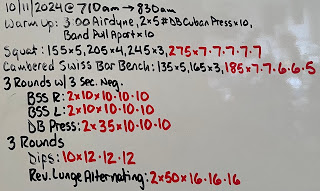 10/11/2024 @ 710am → 830am
Warm Up: 3:00 Airdyne, 2x5#DB Cuban Press x10,
Band Pull Apart x10
Squat: 155x5, 205x4, 245x3, 275x7.7.7.7.7
Cambered Swiss Bar Bench: 135x5, 165x3, 185x7.7.6.6.5
3 Rounds w/ 3 sec. Neg.
BSS R: 2x10x10.10.10
BSS L: 2x10x10.10.10
DB Press: 2x35x10.10.10
3 Rounds
Dips: 10x12.12.12
Rev. Lunge Alternating: 2x50x16.16.16